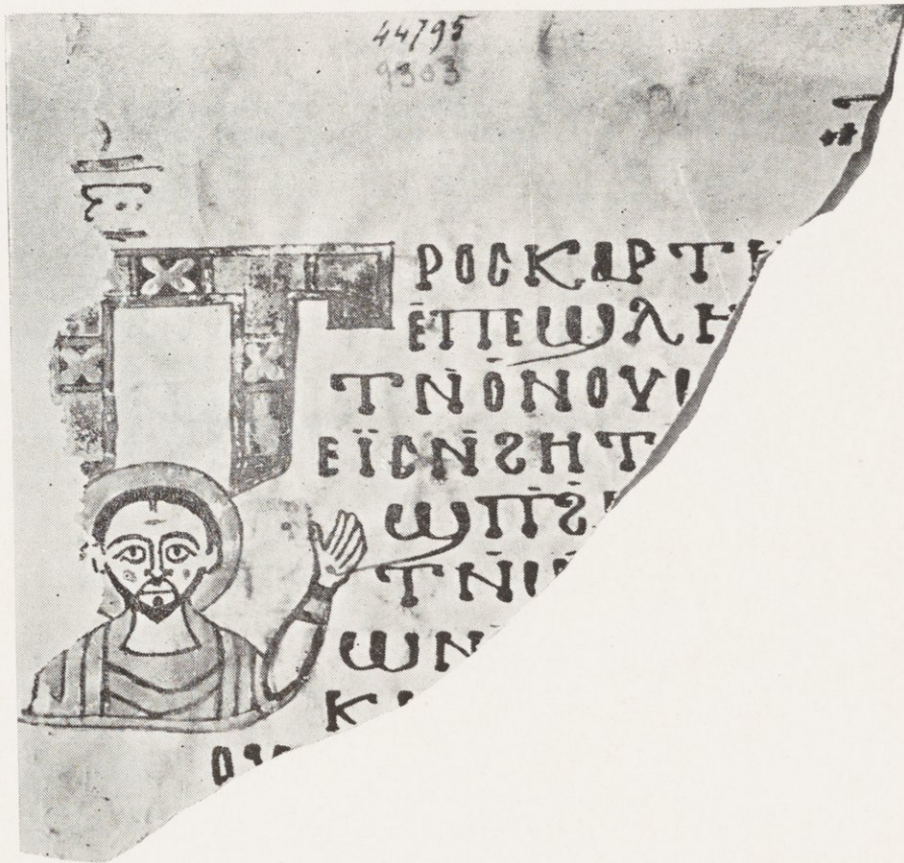 44795
9303
ⲡⲣⲟⲥⲕⲁⲣⲧⲏ
ⲉⲡⲉϣⲗⲏ
ⲧⲛ̇ⲟ̇ⲛⲟⲩ
ⲉⲓ̈ⲥⲛ̇ϩⲏⲧ
ϣⲡ̇ϩ
ⲧⲛ̇
ϣⲛ
ⲕ